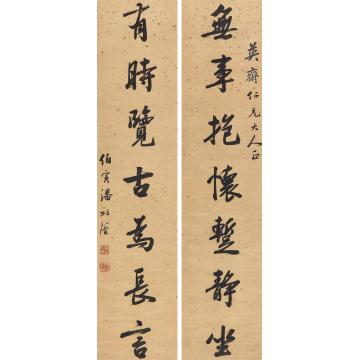 英齋仁兄大人正
無事抱懷蹔靜坐
有時覽古為長言
伯寅潘祖蔭